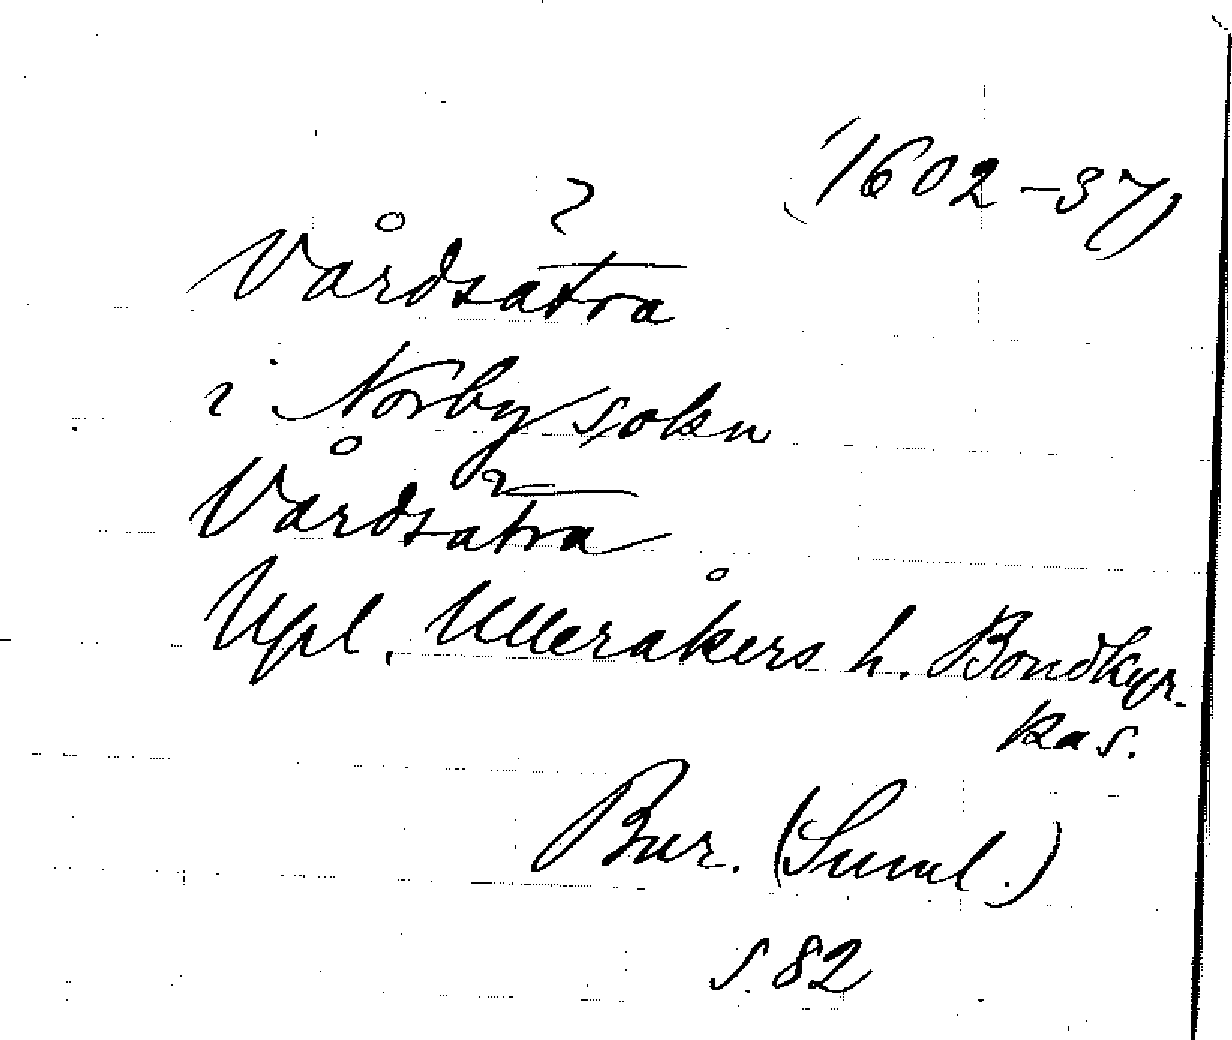 (1602-37)
Vårdsätra
i Norby sokn
Vårdsätra
Upl. Ulleråkers h. Bondkyr-
ka s.
Bur. (Suml.)
s. 82